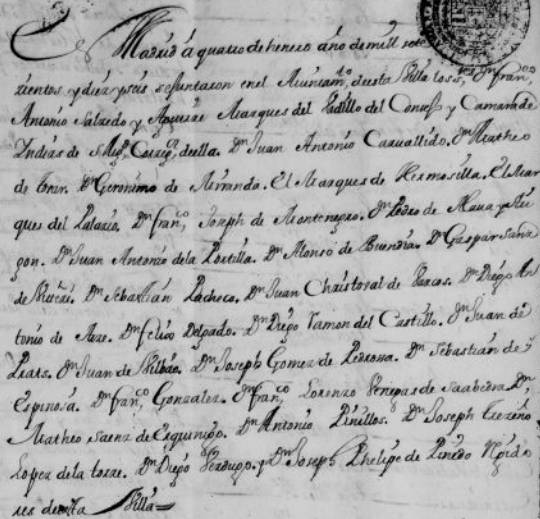 Madrid á quatro de henero año de mill sete
zientos y diez y seis se Juntaron en el Aiuntam.to de esta Villa los SS.res Dn fran.co
Antonio Salzedo y Aguirre Marques del Vadillo del Consejo y Camara de
Indias de S Mg.d Correg.r de ella. Dn Juan Antonio Carvallido. Dn Matheo
de tovar. Dn Geronimo de Miranda. El Marques de Hermosilla. El Mar
ques del Palazio. Dn fran.co Joseph de Montenegro. Dn Pedro de Alava y
gon. Dn Juan Antonio de la Portilla. Dn Alonso de Buendia. Dn Gaspar Sanz
de Dn Sebastian Pacheco. Dn Juan Christoval de Barcos. Dn Diego An
tonio de Dn felix Delgado. Dn Diego Ramon del Castillo. Dn Juan de
Prats. Dn Juan de Bilbao. Dn Joseph Gomez de Pedrosa. Dn Sebastian de
Espinosa. Dn fran.co Gonzalez. Dn fran.co Lorenzo Venegas de Saabedra Dn
Matheo Saenz de Dn Antonio Pinillos. Dn Joseph
Lopez de la torre. Dn Diego Verdugo. y Dn Joseph Phelipe de Pinedo Rejido
res de esta Villa=